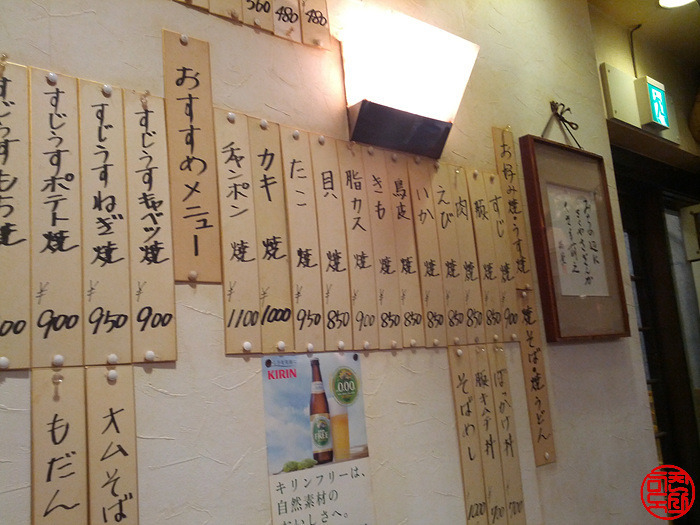 560
480
480
お好み焼・うす焼
焼そば・焼うどん
すじ焼 ¥900
豚焼 ¥850
肉焼 ¥850
えび焼 ¥850
いか焼 ¥850
鳥皮焼 ¥850
きも焼 ¥850
脂カス焼 ¥900
貝焼 ¥850
たこ焼 ¥950
カキ焼 ¥1000
チャンポン焼 ¥1100
おすすめメニュー
すじうすキャベツ焼 ¥900
すじうすねぎ焼 ¥950
すじうすポテト焼 ¥900
すじうすもち焼
ぼっかけ丼
豚キムチ丼 900
そばめし 1000
オムそば
もだん
KIRIN
0.00
FREE
キリンフリーは、
自然素材の
おいしさへ。